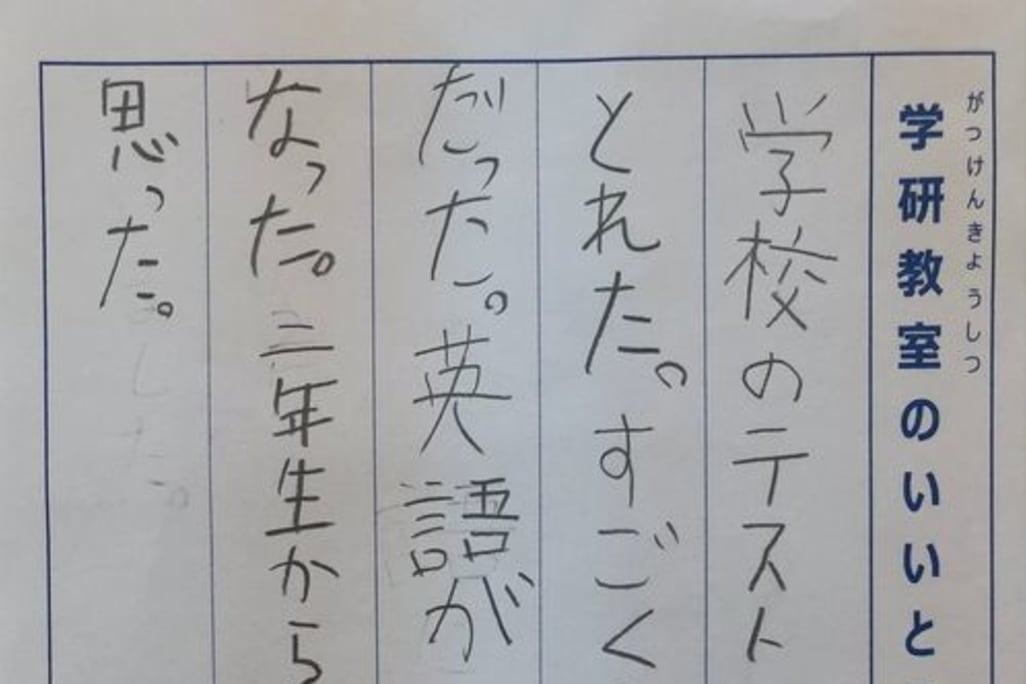 がっけんきょうしつ
学研教室のいいと
学校のテスト
とれた。すごく
だった。英語が
なった。二年生から
思った。